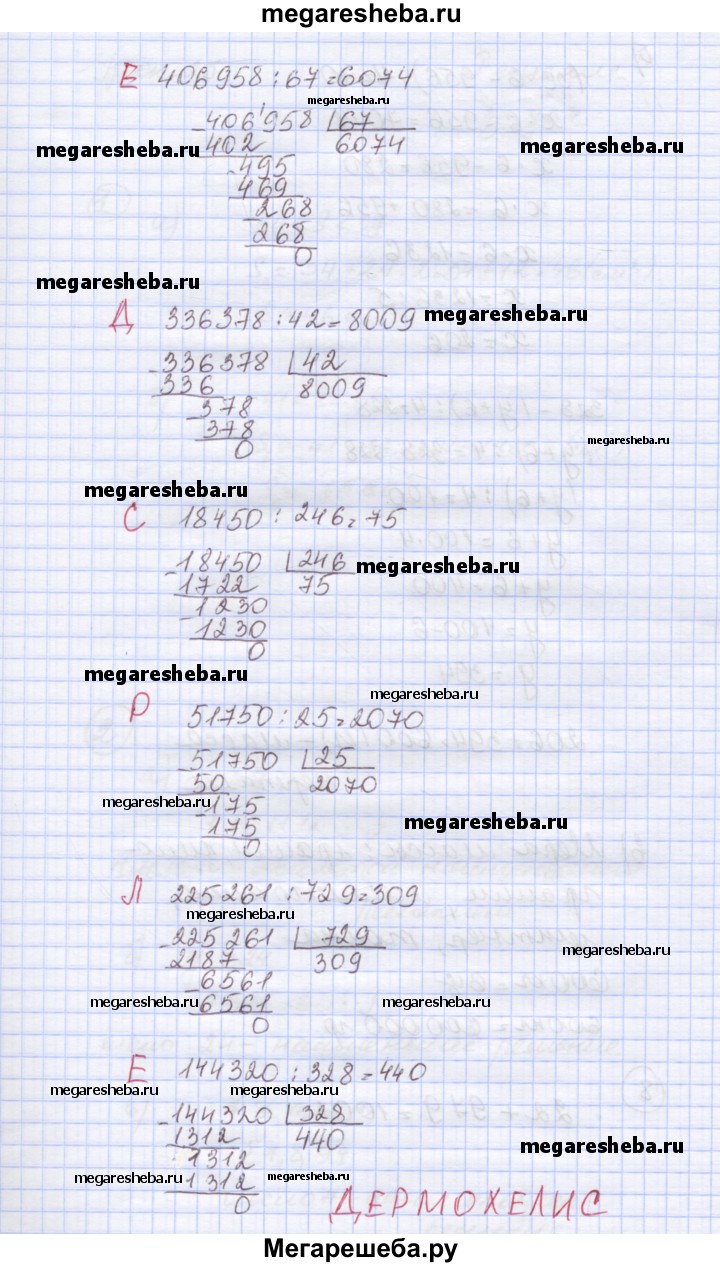 megaresheba.ru
Е 406958 : 67 = 6074
megaresheba.ru
406958 67
megaresheba.ru 402 6074 megaresheba.ru
495
469
268
268
0
megaresheba.ru
Д 336378 : 42 = 8009 megaresheba.ru
336378 42
336 8009
378
378
megaresheba.ru
0
megaresheba.ru
С 18450 : 246 = 75
18450 246 megaresheba.ru
1722 75
1230
1230
0
megaresheba.ru
megaresheba.ru
Р 51750 : 25 = 2070
51750 25
50 2070
megaresheba.ru 175
175 megaresheba.ru
0
Л 225261 : 729 = 309
megaresheba.ru
225261 729
megaresheba.ru
2187 309
6561
megaresheba.ru 6561 megaresheba.ru
0
Е 144320 : 328 = 440
megaresheba.ru megaresheba.ru
144320 328
1312 440 megaresheba.ru
1312
megaresheba.ru 1312 megaresheba.ru
0
ДЕРМОХЕЛИС
Мегарешеба.ру